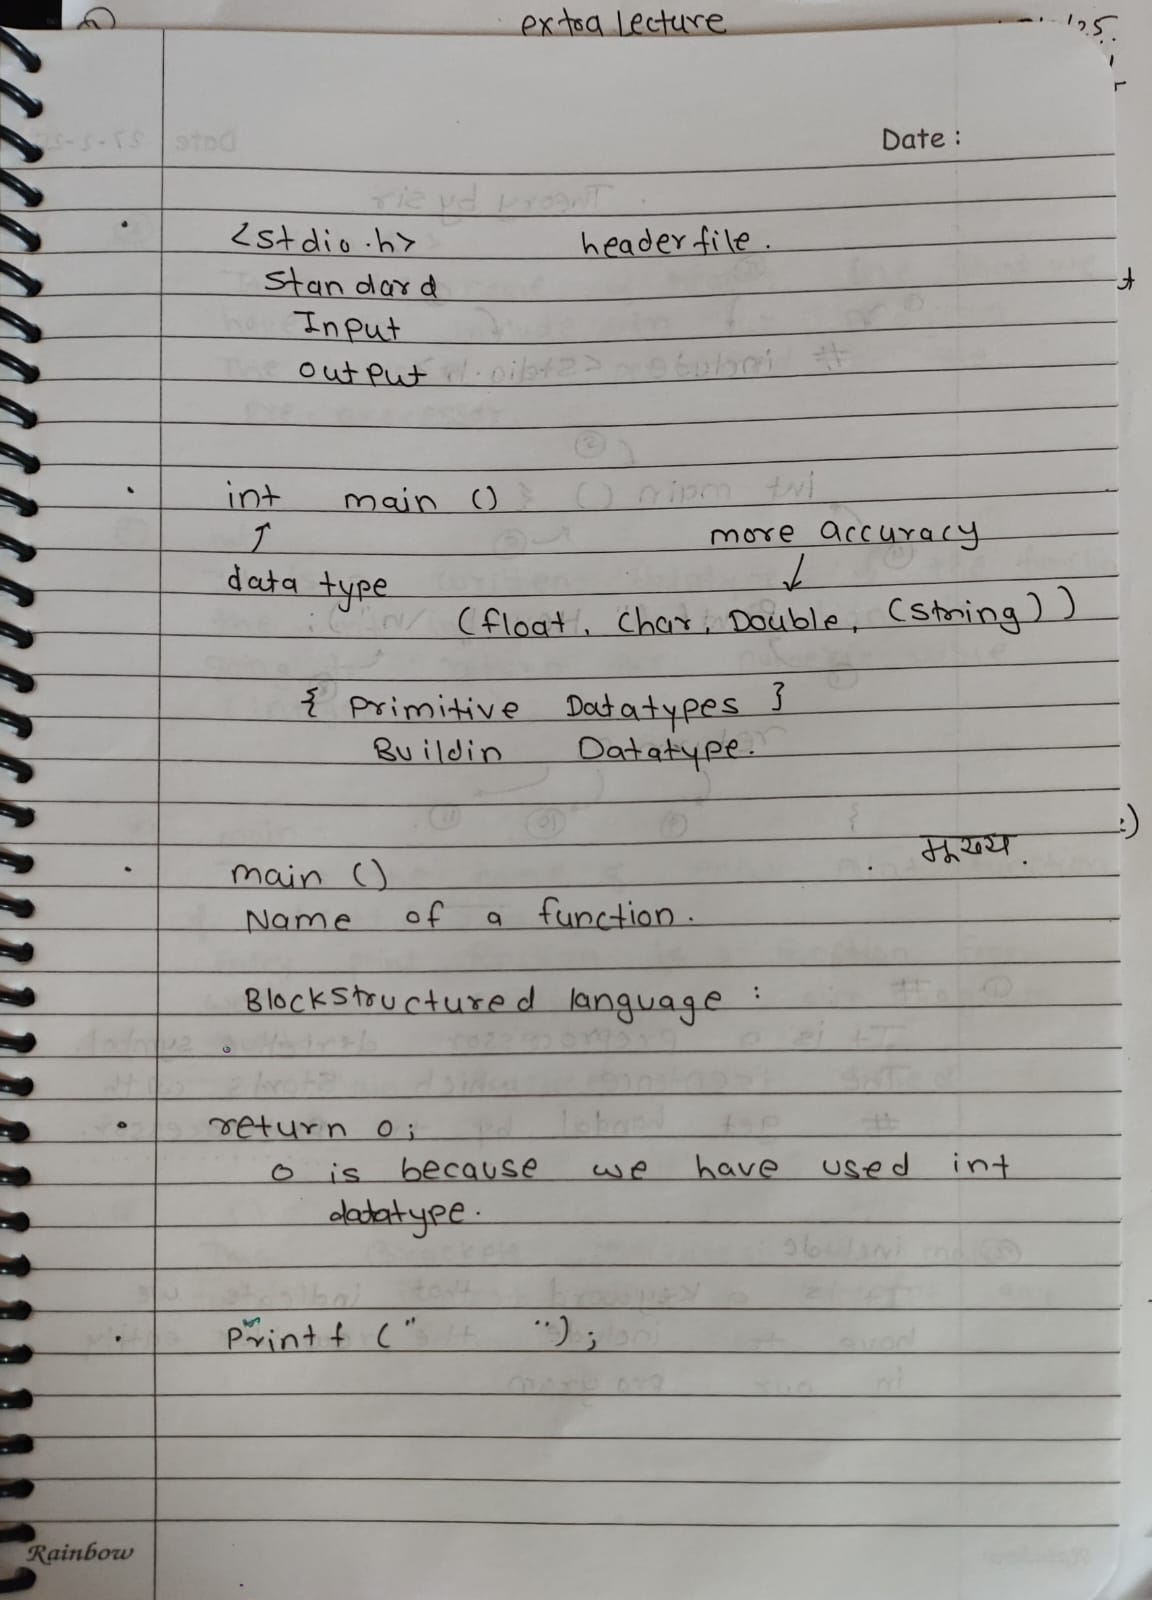 extra Lecture
Date :
<stdio.h> headerfile.
Standard
Input
output
int main ()
more accuracy
data type
(float, Char, Double, (string))
{ Primitive Datatypes }
Buildin Datatype.
main ()
Name of a function.
Blockstructured language :
return 0;
0 is because we have used int
datatype.
Printf (" ");
Rainbow